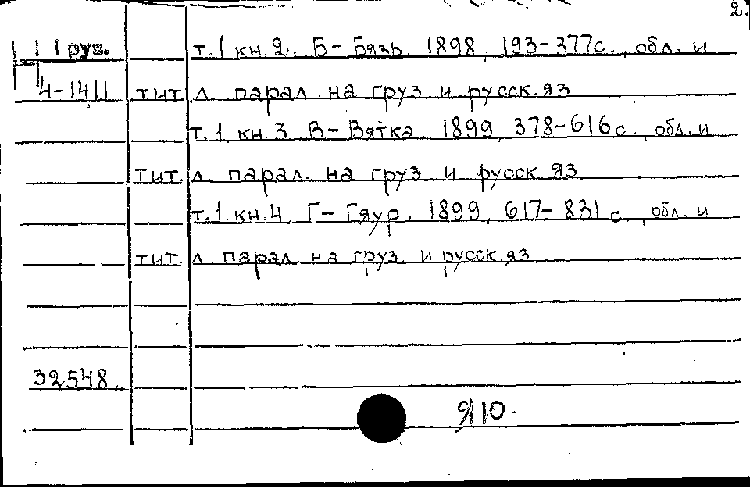 2.
1 груз. т. 1 кн. 2. Б – Бязь 1898, 193-377с., обл. и
4-1411 тит. л. парал. на груз и русск. яз
т. 1 кн. 3. В – Вятка 1899, 378-616с., обл. и
тит. л. парал. на груз и русск. яз
т. 1 кн. 4. Г – Гяур. 1899, 617-831 с., обл. и
тит. л. парал. на груз. и русск. яз
32548
910.